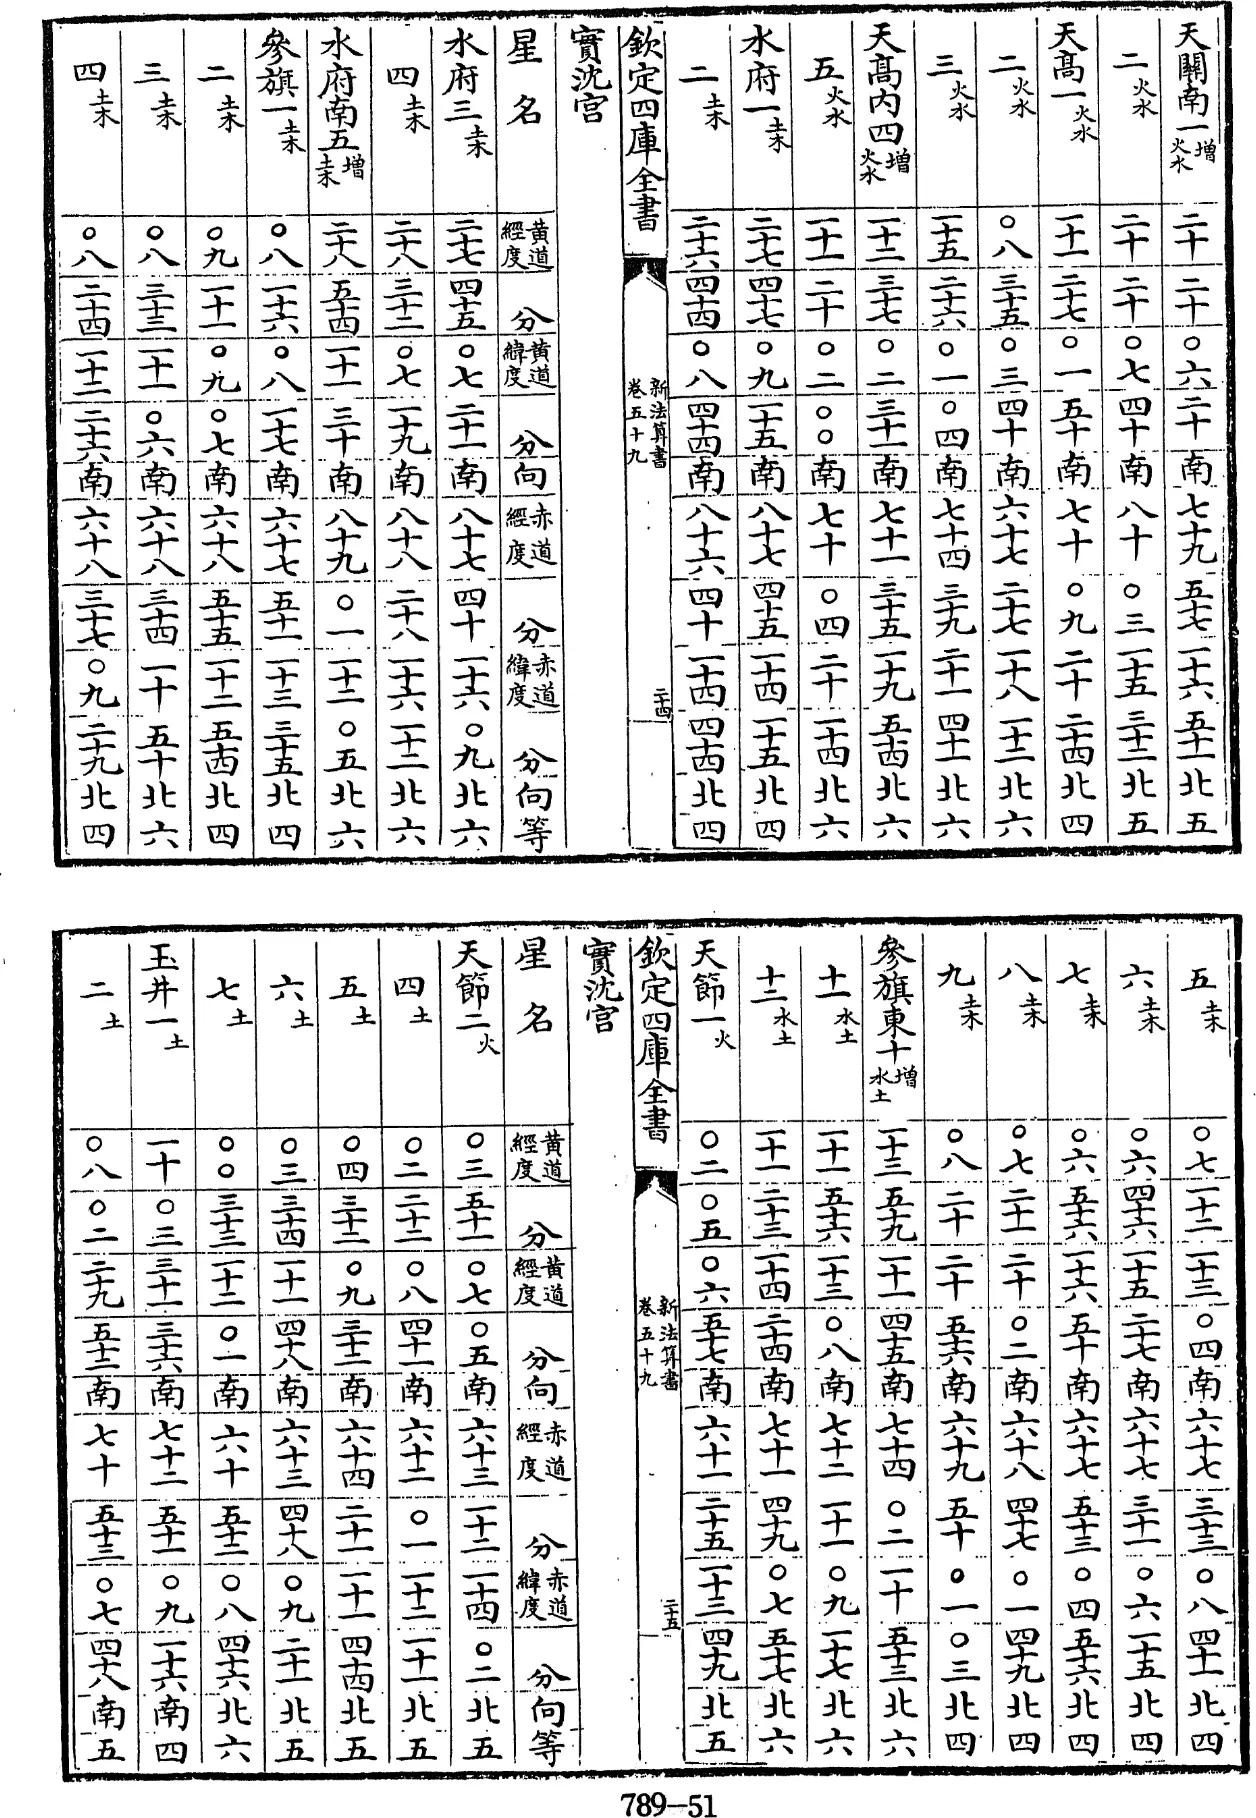 天關南一增火水 二十 二十 ○六 二十 南 七十九 五十七 一十六 五十一 北 五
二火水 二十 二十 ○七 四十 南 八十 ○三 一十五 三十二 北 五
天高一火水 一十一 二十七 ○一 五十 南 七十 ○九 二十 二十四 北 四
二火水 ○八 三十五 ○三 四十 南 六十七 二十七 一十八 一十二 北 六
三火水 一十五 二十六 ○一 ○四 南 七十四 三十九 二十一 四十一 北 六
天高內四增火水 一十二 三十七 ○二 三十一 南 七十一 三十五 一十九 五十四 北 六
五火水 一十一 二十 ○二 ○○ 南 七十 ○四 二十 一十四 北 六
水府一土木 二十七 四十七 ○九 一十五 南 八十七 四十五 一十四 一十五 北 四
二土木 二十六 四十四 ○八 四十四 南 八十六 四十 一十四 四十四 北 四
欽定四庫全書 新法算書卷五十九 二十四
實沈宮
星名 黃道經度 分 黃道緯度 分 向 赤道經度 分 赤道緯度 分 向 等
水府三土木 二十七 四十五 ○七 二十一 南 八十七 四十 一十六 ○九 北 六
四土木 二十八 三十二 ○七 一十九 南 八十八 二十八 一十六 一十二 北 六
水府南五增土木 二十八 五十四 一十一 三十 南 八十九 ○一 一十二 ○五 北 六
參旗一土木 ○八 一十六 ○八 一十七 南 六十七 五十一 一十三 三十五 北 四
二土木 ○九 一十一 ○九 ○七 南 六十八 五十五 一十二 五十四 北 四
三土木 ○八 三十三 一十一 ○六 南 六十八 三十四 一十 五十 北 六
四土木 ○八 二十四 一十二 二十六 南 六十八 三十七 ○九 二十九 北 四
五土木 ○七 一十二 一十三 ○四 南 六十七 三十三 ○八 四十一 北 四
六土木 ○六 四十六 一十五 二十七 南 六十七 三十一 ○六 一十五 北 四
七土木 ○六 五十六 一十六 五十 南 六十七 五十三 ○四 五十六 北 四
八土木 ○七 二十一 二十 ○二 南 六十八 四十七 ○一 四十九 北 四
九土木 ○八 二十 二十 五十六 南 六十九 五十 ○一 ○三 北 四
參旗東十增水土 一十三 五十九 一十一 四十五 南 七十四 ○二 一十 五十三 北 六
十一水土 一十一 五十六 一十三 ○八 南 七十二 一十一 ○九 一十七 北 六
十二水土 一十一 二十三 一十四 二十四 南 七十一 四十九 ○七 五十七 北 六
天節一火 ○二 ○五 ○六 五十七 南 六十一 二十五 一十三 四十九 北 五
欽定四庫全書 新法算書卷五十九 二十五
實沈宮
星名 黃道經度 分 黃道經度 分 向 赤道經度 分 赤道緯度 分 向 等
天節二火 ○三 五十一 ○七 ○五 南 六十三 一十二 一十四 ○二 北 五
四土 ○二 二十二 ○八 四十一 南 六十二 ○一 一十二 一十一 北 五
五土 ○四 三十二 ○九 三十二 南 六十四 二十一 一十一 四十四 北 五
六土 ○三 三十四 一十一 四十八 南 六十三 四十八 ○九 二十一 北 五
七土 ○○ 三十三 一十二 ○一 南 六十 五十二 ○八 四十六 北 六
玉井一土 一十 ○三 三十一 三十六 南 七十二 五十一 ○九 一十六 南 四
二土 ○八 ○二 二十九 五十二 南 七十 五十三 ○七 四十八 南 五
789—51